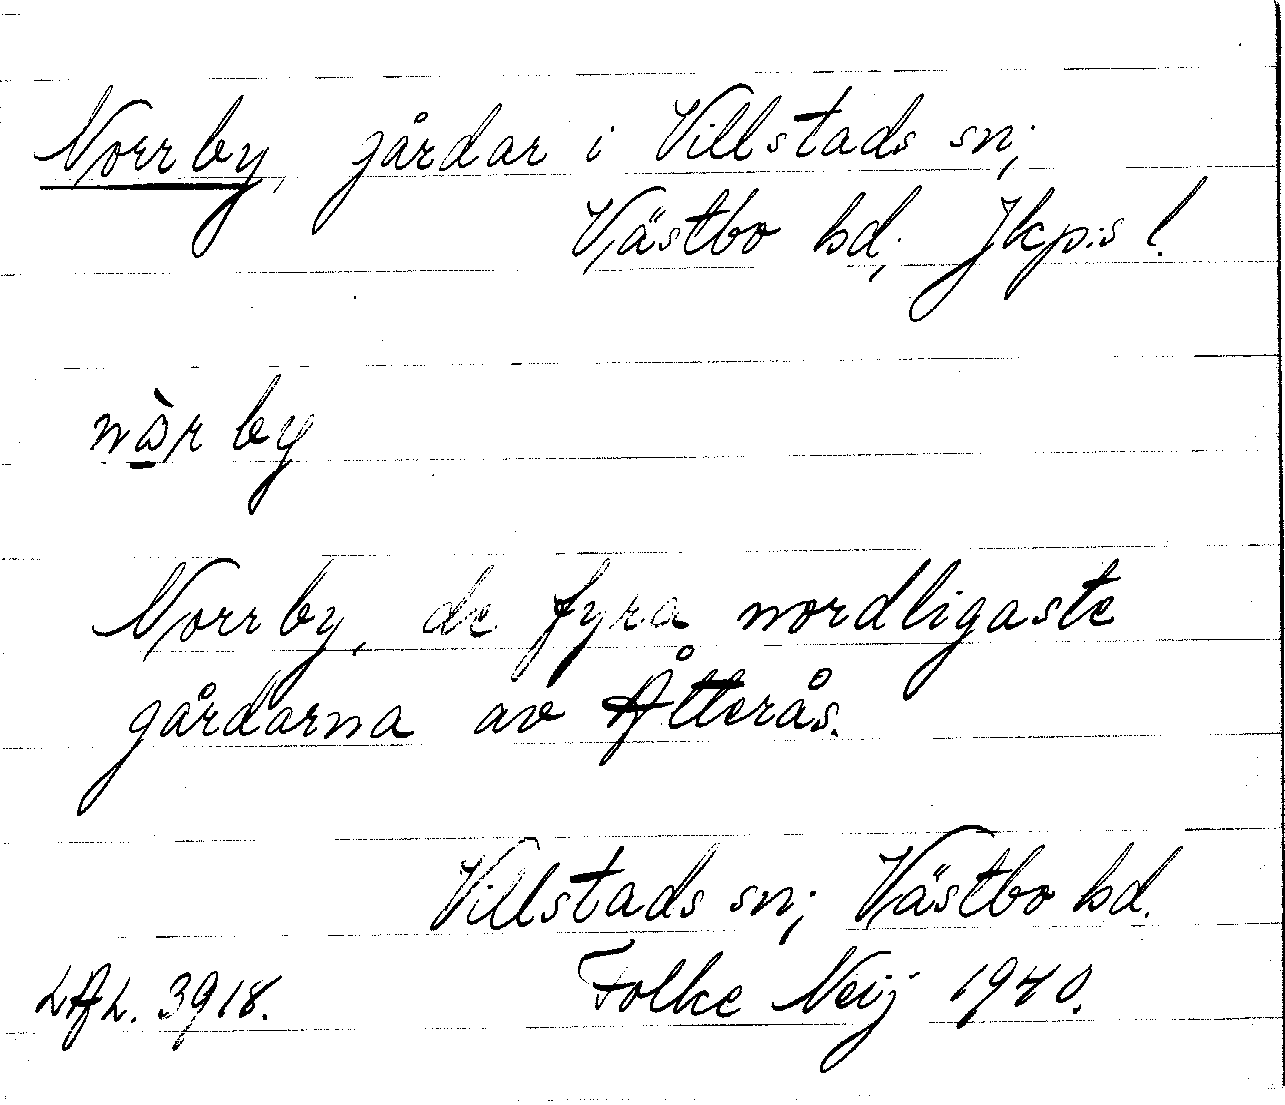 Norrby, gårdar i Villstads sn;
Västbo hd; Jkp:s l.
nòr by
Norrby, de fyra nordligaste
gårdarna av Åtterås.
Villstads sn; Västbo hd.
LAL. 3918. Folke Neij 1940.